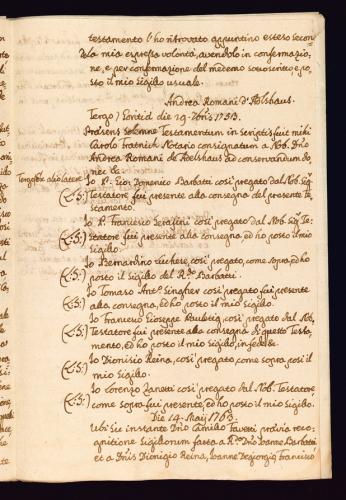 testamento l'ho ritrovato appuntino esteso secon=
do la mia espressa volontà, avendolo in confermazio=
ne, e per confermazione del medemo sottoscritto e po=
sto il mio sigillo usuale.
Andrea Romani d'Adlshaus.
Tergo, Loritid die 29. 9bris 1753.
Præsens solemne Testamentum in scriptis fuit mihi
Carolo Notario consignatum a Nob. Dno
Andrea Romani de Adelshaus ad conservandum do
nec &a
Tergo & alio latere
(L:S:) Io P. Gio: Domenico Barbatti così pregato dal Nob. Sigr
Testatore fui presente alla consegna del presente Te=
stamento.
(L:S:) Io P. Francesco Serafini così pregato dal Nob. Sigr Te=
statore fui presente alla consegna, ed ho posto il mio
sigillo.
(L:S:) Io Bernardino così pregato, come sopra, ed ho
posto il sigillo del R.do Barbatti.
(L:S:) Io Tomaso Anto. così pregato fui presente
alla consegna, ed ho posto il mio sigillo.
(L:S:) Io Francesco Gioseppe così pregato dal Nob.
Testatore fui presente alla consegna di questo Testa=
mento, ed ho posto il mio sigillo, in fede &c.
(L:S:) Io Dionisio Reina, così pregato come sopra posi il
mio sigillo.
(L:S:) Io Lorenzo Zanetti così pregato dal Nob. Testatore,
come sopra fui presente, ed ho posto il mio sigillo.
Die 14. Maij 1763.
Ubi sic instante Dno Camillo Tavetti prævia reco=
gnitione Sigillorum facta a R.do Dno Joanne Barbatti
et a Dnis Dionigio Reina, Joanne Francisco